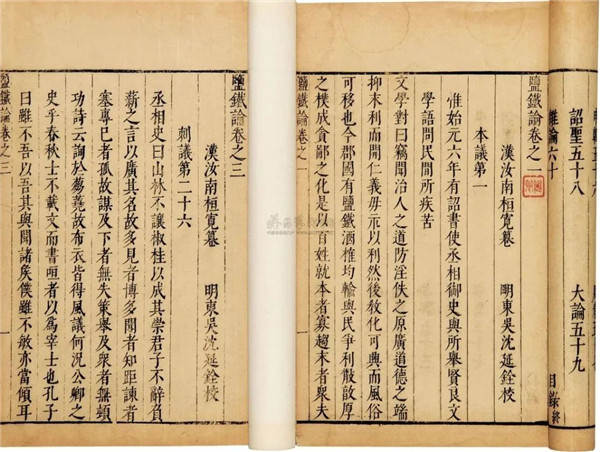 詔聖五十八 大論五十九
雜論六十 目錄終
鹽鐵論卷之一
漢汝南桓寬纂 明東吳沈延銓校
本議第一
惟始元六年有詔書使丞相御史與所舉賢良文
學語問民間所疾苦
文學對曰竊聞治人之道防淫佚之原廣道德之端
抑末利而開仁義毋示以利然後敎化可興而風俗
可移也今郡國有鹽鐵酒榷均輸與民爭利散敦厚
之樸成貪鄙之化是以百姓就本者寡趨末者衆夫
鹽鐵論卷之一 一
鹽鐵論卷之三
漢汝南桓寬纂 明東吳沈延銓校
刺議第二十六
丞相史曰山林不讓椒桂以成其崇君子不辭負
薪之言以廣其名故多見者博多聞者知距諫者
塞專己者孤故謀及下者無失策舉及衆者無頓
功詩云詢於芻蕘故布衣皆得風議何況公卿之
史乎春秋士不載文而書咺者以爲宰士也孔子
曰雖不吾以吾其與聞諸矦僕雖不敏亦嘗傾耳
鹽鐵論卷之三 一